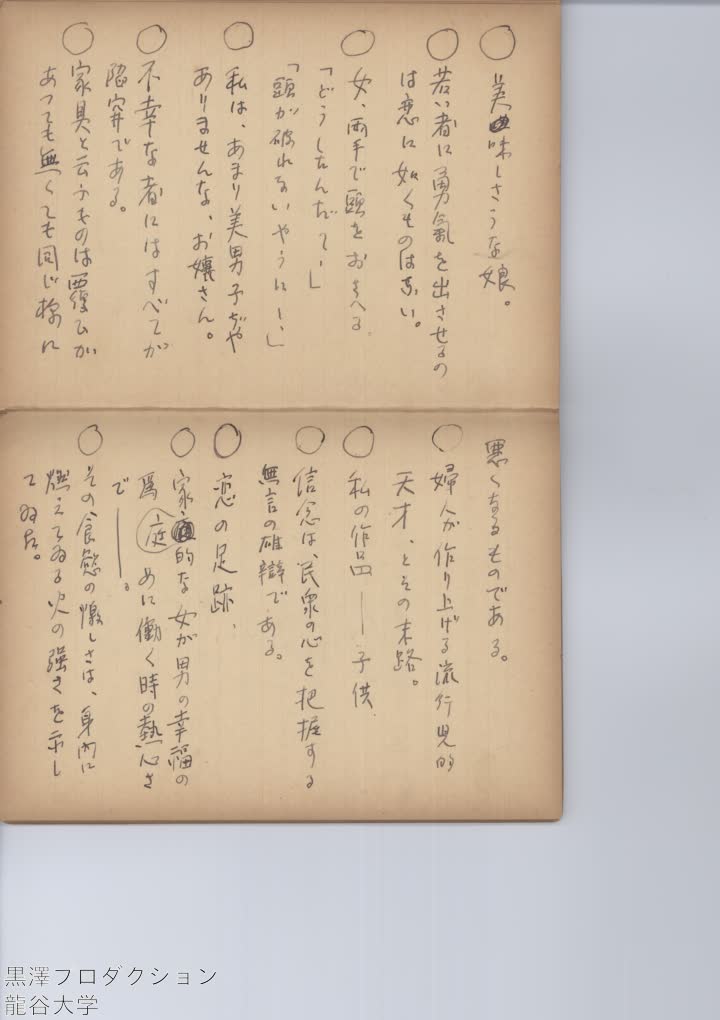 ○ 美味しさうな娘。
○ 若い者に勇氣を出させるの
は恋に如くものはない。
○ 女、両手で頭をおさへる。
「どうしたんだて、」
「頭が破れないやうにー、」
○ 私は、あまり美男子ぢや
ありませんな、お孃さん。
○ 不幸な者にはすべてが
陥穽である。
○ 家具と云ふものは覆ひが
あつても無くても同じ様に
悪くなるものである。
○ 婦人が作り上げる流行児的
天才、とその末路。
○ 私の作品——子供
○ 信念は、民衆の心を把握する
無言の雄辯である。
○ 恋の足跡、
○ 家庭的な女が男の幸福の
爲めに働く時の熱心さ
で——。
○ その食慾の激しさは、身内に
燃えてゐる火の強さを示し
てゐた。
黒澤プロダクション
龍谷大学